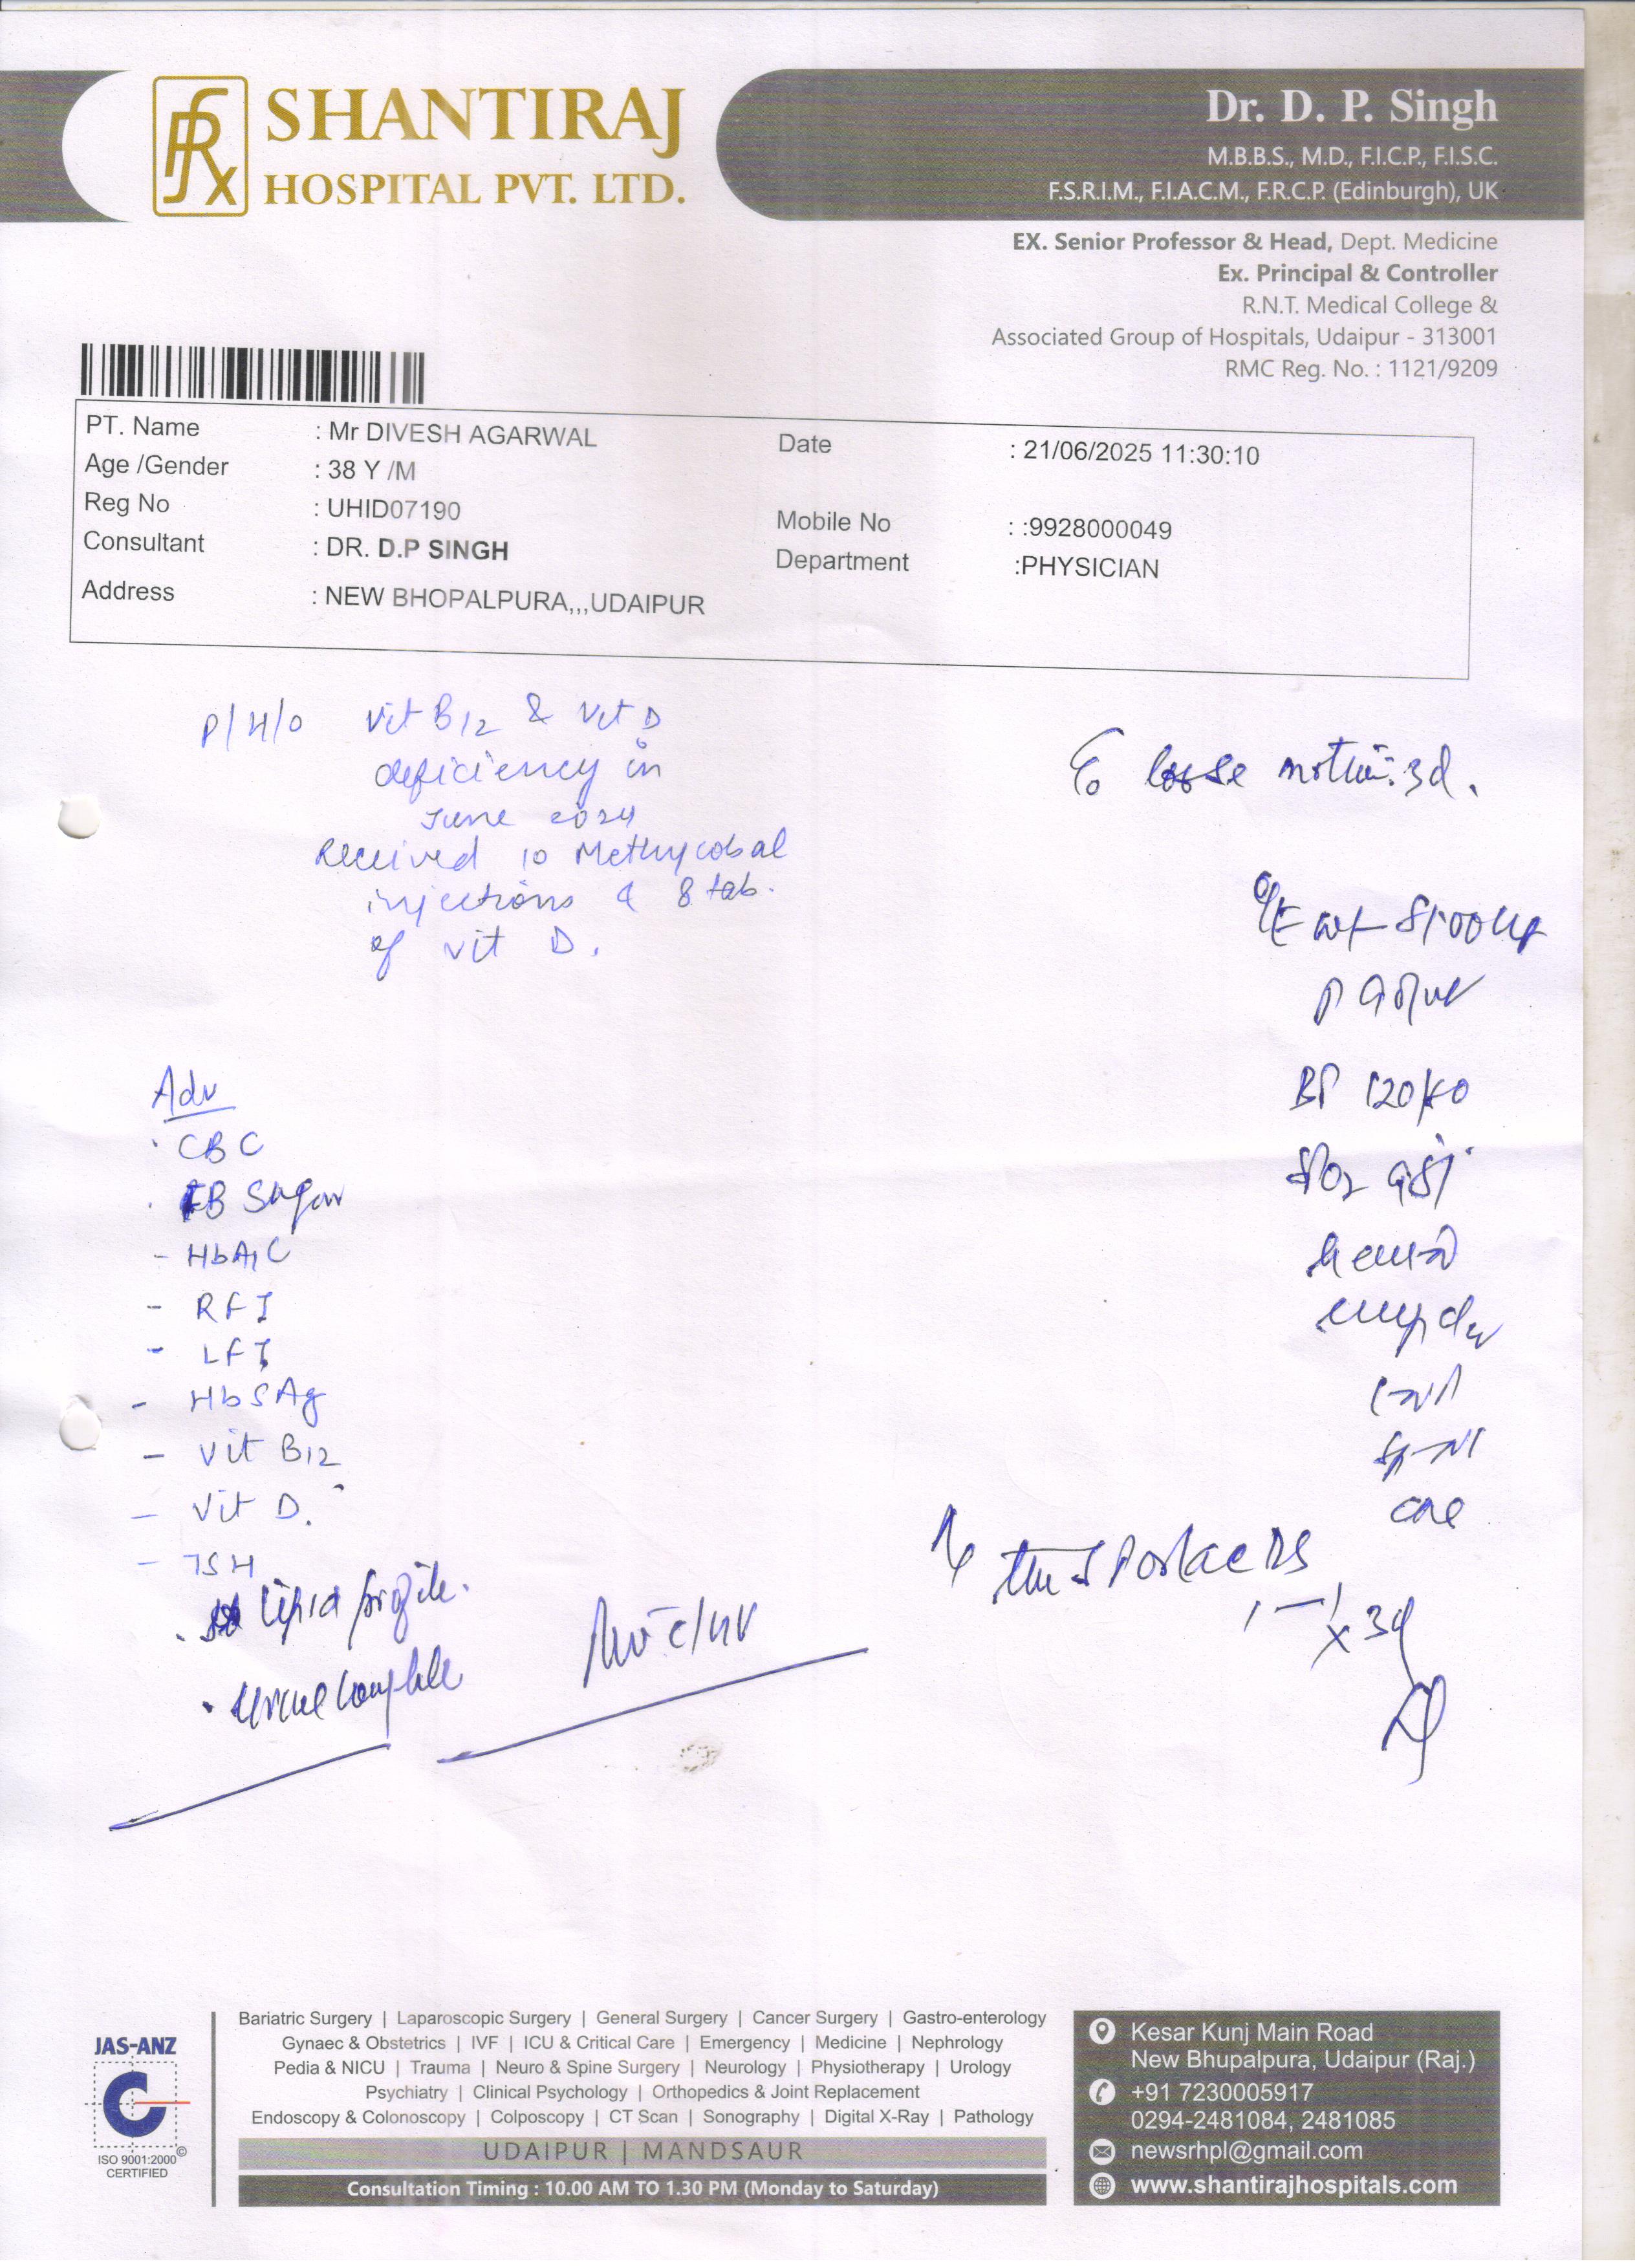 SHANTIRAJ
HOSPITAL PVT. LTD.
Dr. D. P. Singh
M.B.B.S., M.D., F.I.C.P., F.I.S.C.
F.S.R.I.M., F.I.A.C.M., F.R.C.P. (Edinburgh), UK
EX. Senior Professor & Head, Dept. Medicine
Ex. Principal & Controller
R.N.T. Medical College &
Associated Group of Hospitals, Udaipur - 313001
RMC Reg. No. : 1121/9209
PT. Name : Mr DIVESH AGARWAL
Date : 21/06/2025 11:30:10
Age /Gender : 38 Y /M
Reg No : UHID07190
Mobile No : :9928000049
Consultant : DR. D.P SINGH
Department :PHYSICIAN
Address : NEW BHOPALPURA,,,UDAIPUR
P/H/O Vit B12 & Vit D
deficiency in
June 2024
Received 10 Methycobal
injections & 8 tab.
of vit D.
loose motion 3d.
O/E wt
BP 120/80
SPO2
Adv
CBC
FB Sugar
- HbA1C
- RFT
- LFT
- HbSAg
- Vit B12
- Vit D.
- TSH
Lipid profile.
x 3d
JAS-ANZ
ISO 9001:2000
CERTIFIED
Bariatric Surgery | Laparoscopic Surgery | General Surgery | Cancer Surgery | Gastro-enterology
Gynaec & Obstetrics | IVF | ICU & Critical Care | Emergency | Medicine | Nephrology
Pedia & NICU | Trauma | Neuro & Spine Surgery | Neurology | Physiotherapy | Urology
Psychiatry | Clinical Psychology | Orthopedics & Joint Replacement
Endoscopy & Colonoscopy | Colposcopy | CT Scan | Sonography | Digital X-Ray | Pathology
UDAIPUR | MANDSAUR
Consultation Timing : 10.00 AM TO 1.30 PM (Monday to Saturday)
Kesar Kunj Main Road
New Bhupalpura, Udaipur (Raj.)
+91 7230005917
0294-2481084, 2481085
newsrhpl@gmail.com
www.shantirajhospitals.com